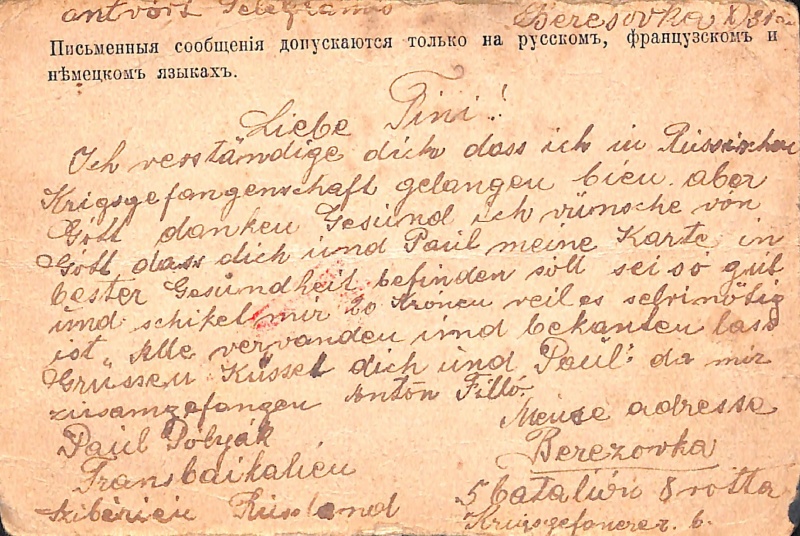 antvort Telegramis Beresovka X 31
Письменныя сообщенія допускаются только на русскомъ, французскомъ и
нѣмецкомъ языкахъ.
Liebe Tini!
Ich verständige dich dass ich in Russischen
Krigsgefangenschaft gelangen bieu. aber
Gott danken Gesund ich vünsche von
Gott dass dich und Paul meine Karte in
bester Gesundheit befinden soll sei so gut
und schikel mir 20 Kronen veil es sehrinötig
ist. Alle vervanden und bekanten lass
Grüssen Küsset dich und Paul: da mir
zusamgefangen Anton Filló
Paul Pólyák
Transbaikalieu
Szibérieu Russland
Meine adresse
Berezovka
5 batalion 8 rotta